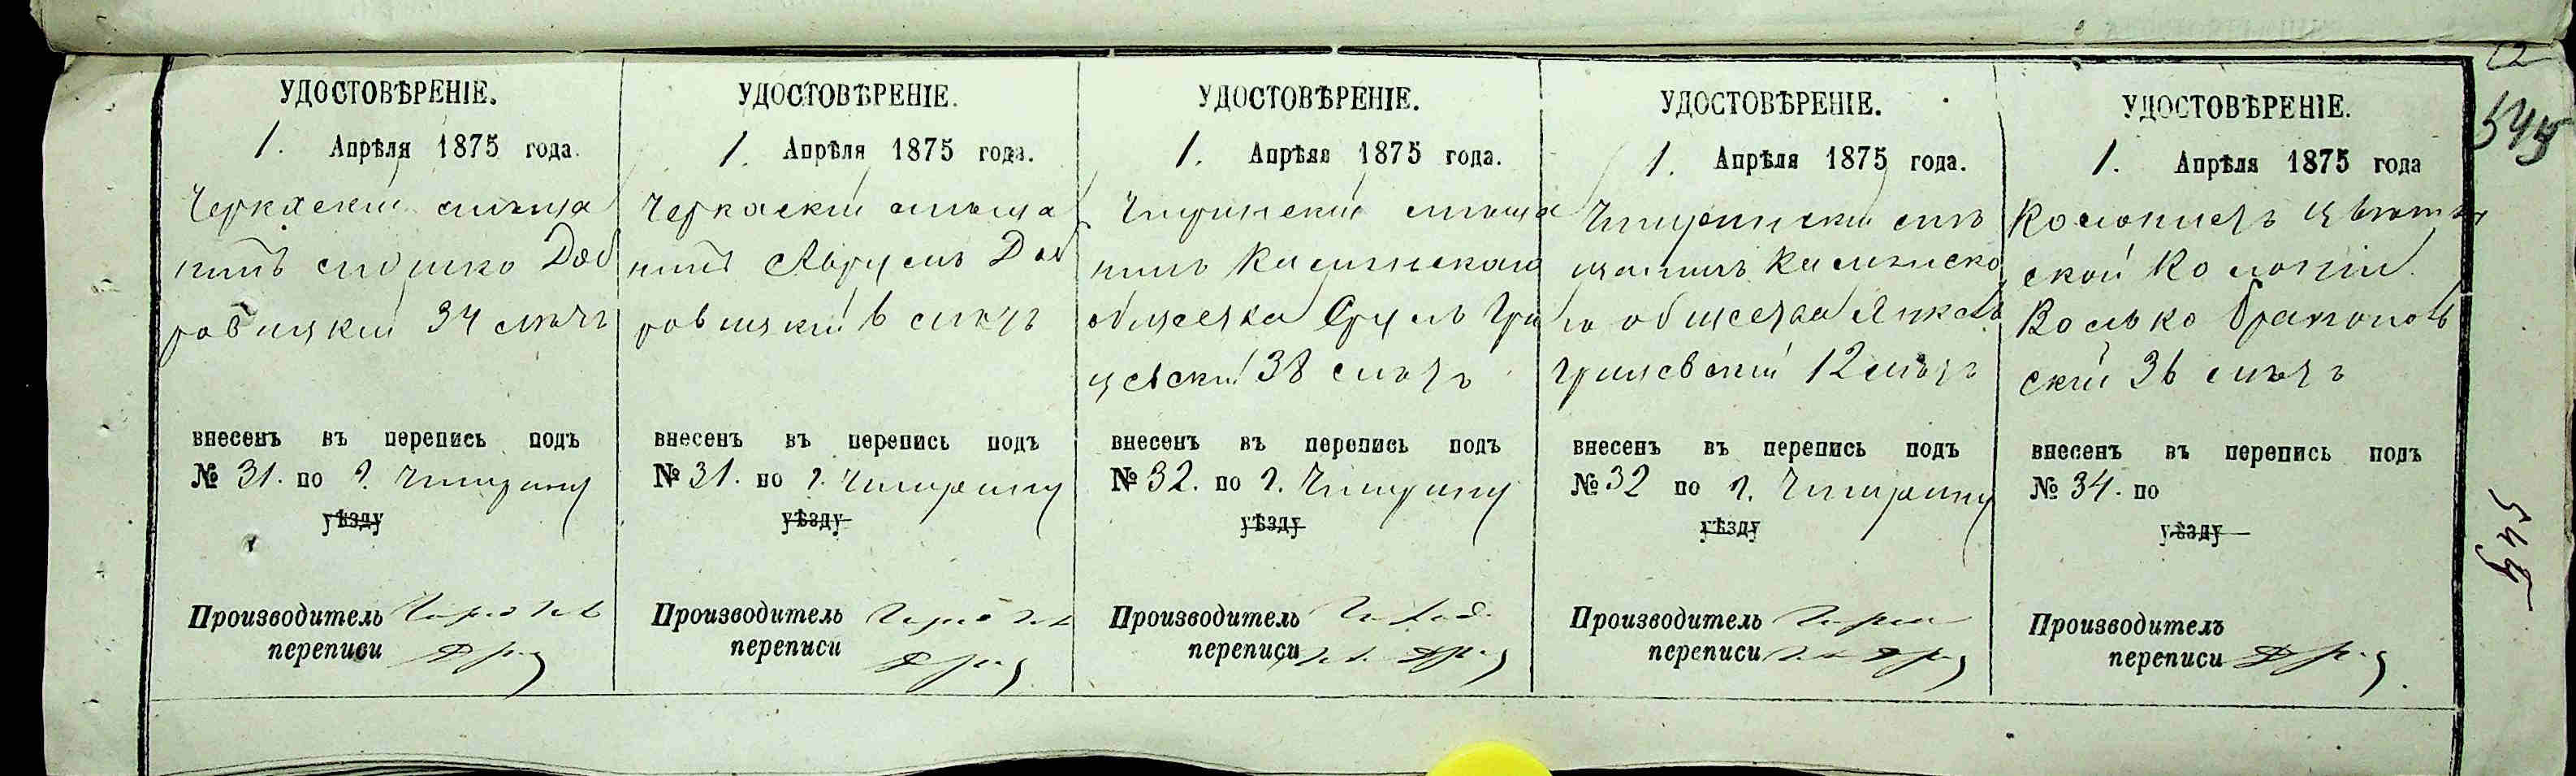 УДОСТОВѢРЕНІЕ.
1. Апрѣля 1875 года.
Черкаскій мѣща
нинъ Мошко Доб
ровицкій 34 лѣтъ
внесенъ въ перепись подъ
№ 31. по г. Чигирину
уѣзду
Производитель
переписи
УДОСТОВѢРЕНІЕ.
1. Апрѣля 1875 года.
Черкаскій мѣща
нинъ Аврумъ Доб
ровицкій 6 лѣтъ
внесенъ въ перепись подъ
№ 31. по г. Чигирину
уѣзду
Производитель
переписи
УДОСТОВѢРЕНІЕ.
1. Апрѣля 1875 года.
Чигринскій мѣща
нинъ
общества Сруль Гри
цевскій 38 лѣтъ
внесенъ въ перепись подъ
№ 32. по г. Чигирину
уѣзду
Производитель
переписи
УДОСТОВѢРЕНІЕ.
1. Апрѣля 1875 года.
Чигринскій мѣ
щанинъ
го общества Янкель
Грицевскій 12 лѣтъ
внесенъ въ перепись подъ
№ 32 по г. Чигирину
уѣзду
Производитель
переписи
УДОСТОВѢРЕНІЕ.
1. Апрѣля 1875 года
Колонистъ
ской Колоніи
Волько
скій 36 лѣтъ
внесенъ въ перепись подъ
№ 34. по
уѣзду
Производитель
переписи
545